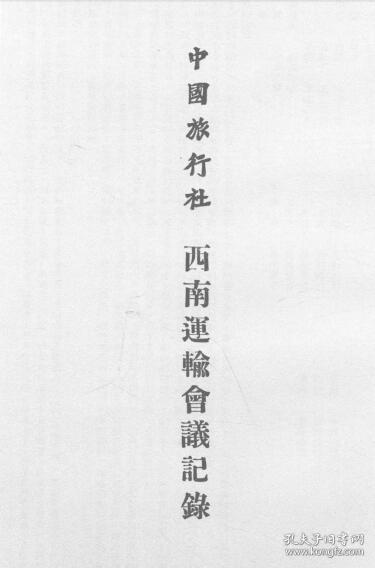 中國旅行社 西南運輸會議記錄
孔夫子旧书网
www.kongfz.com